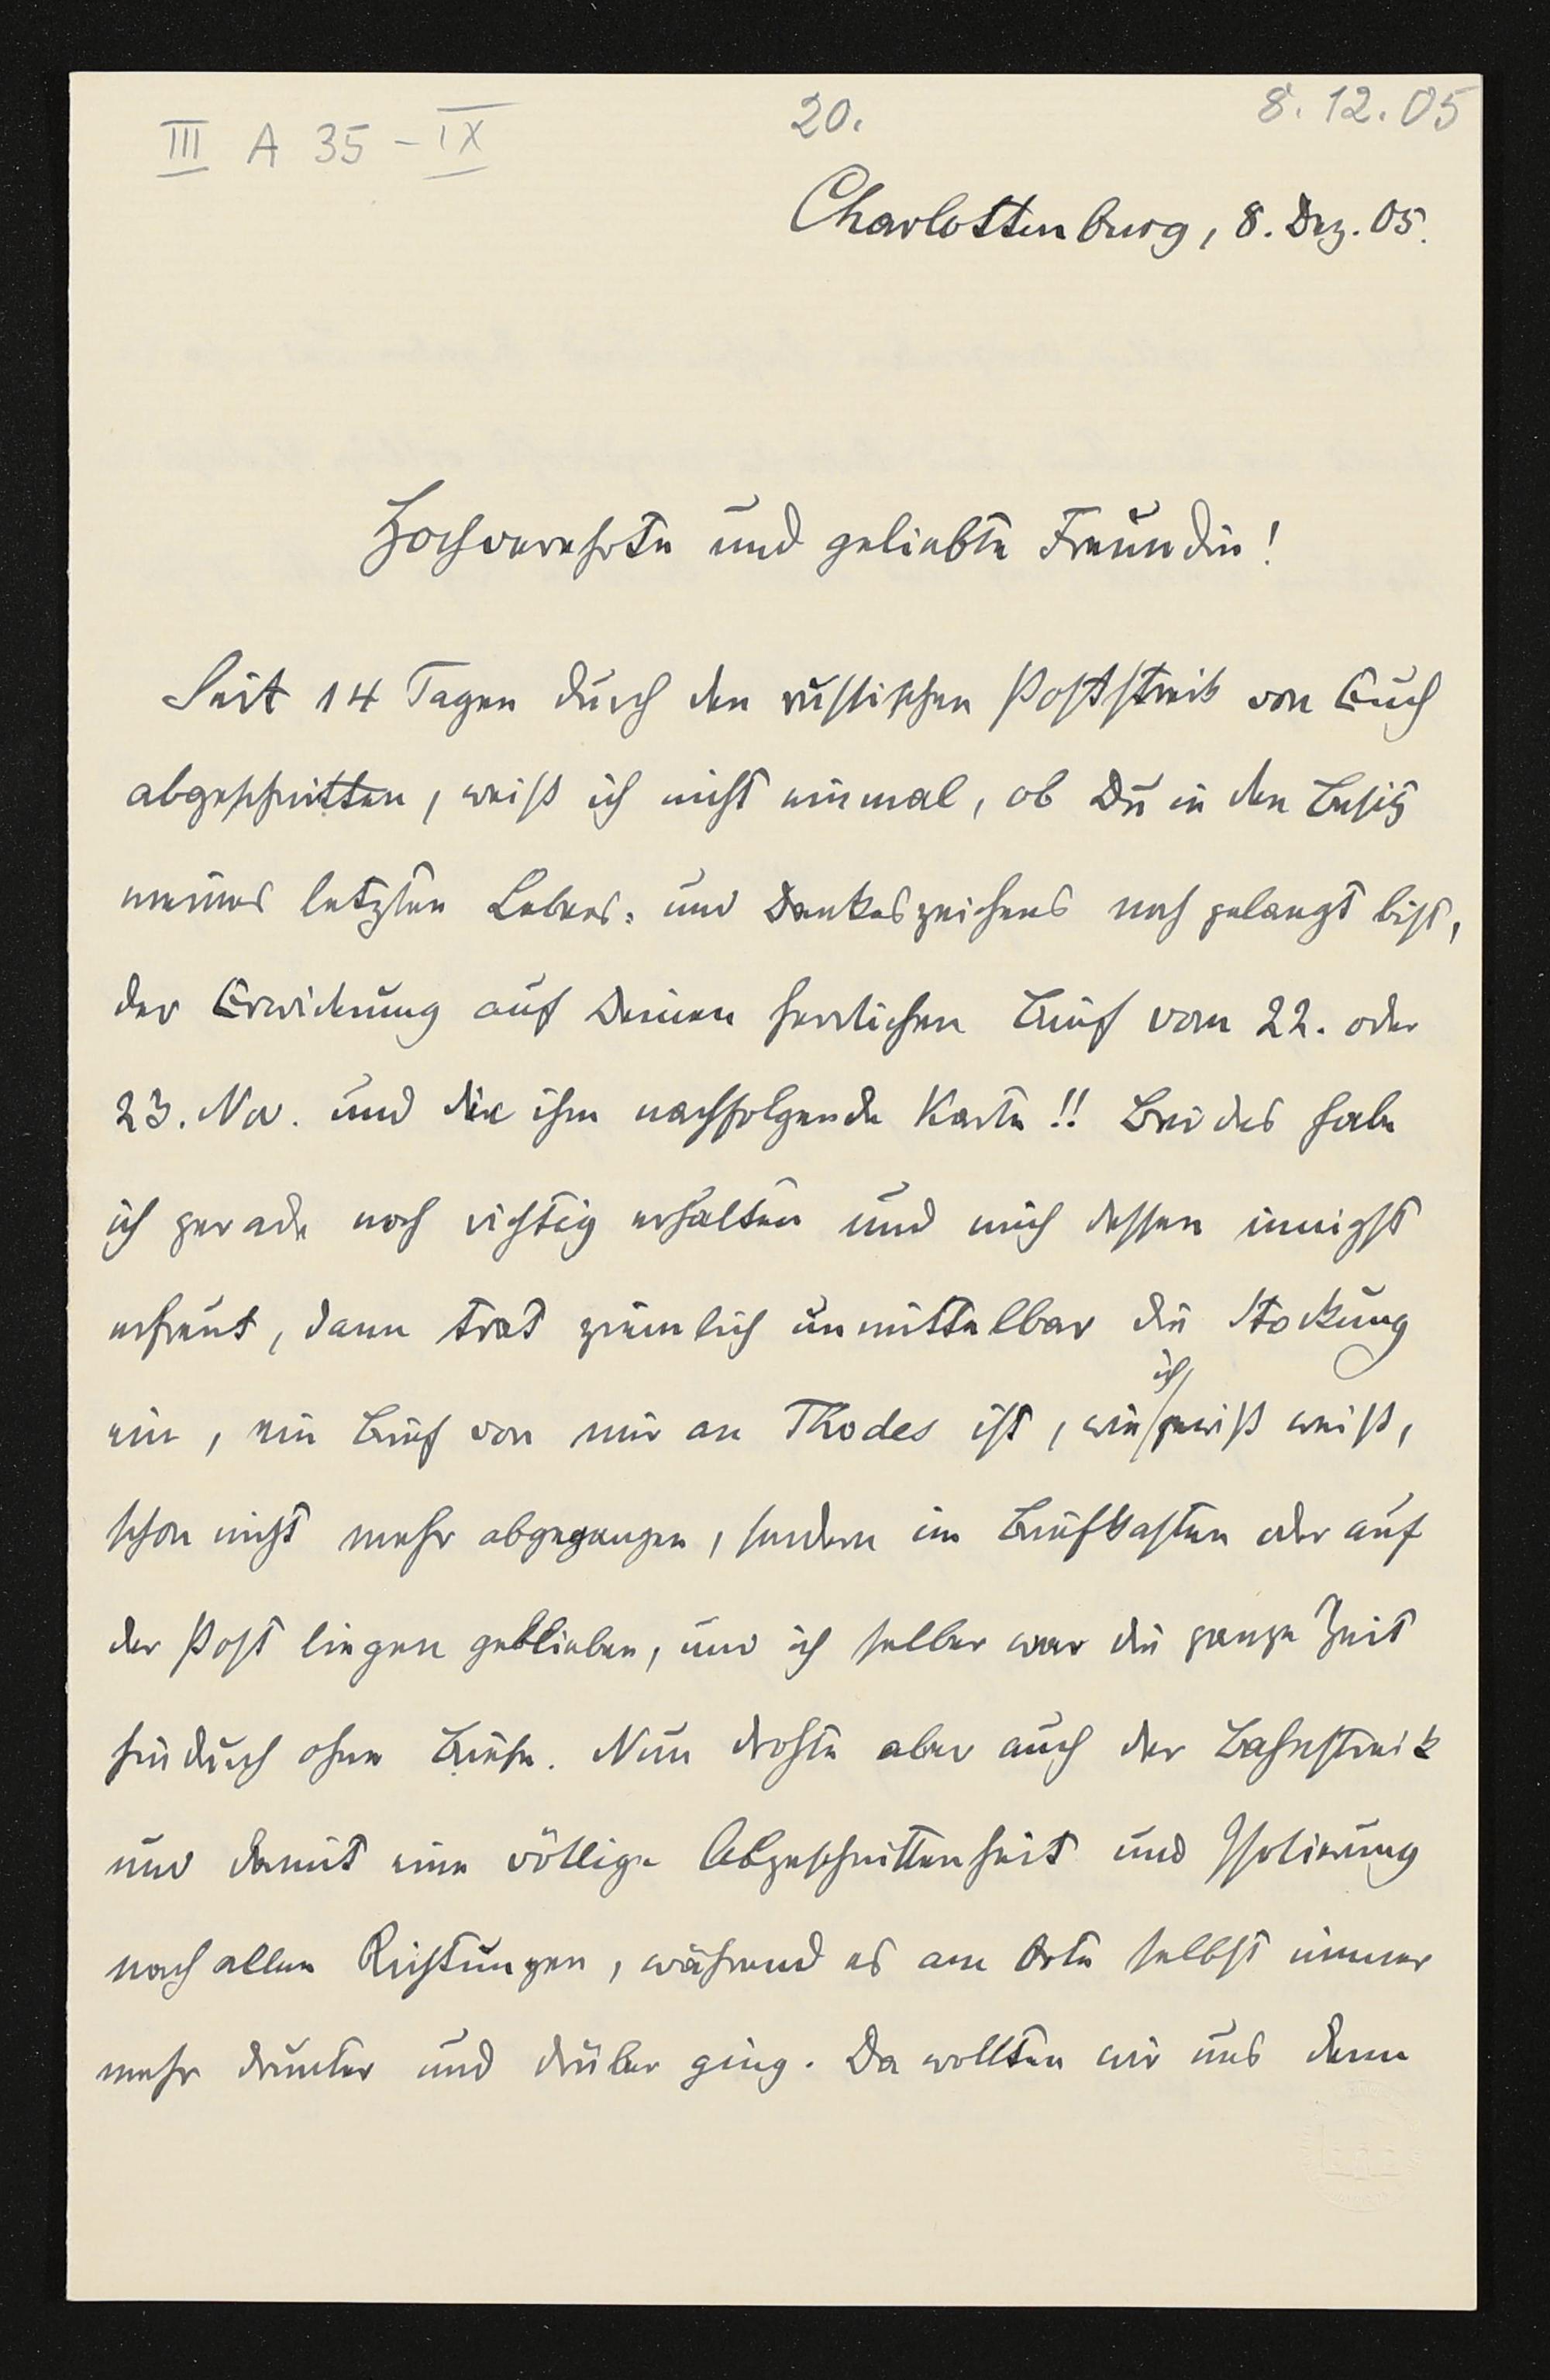 III A 35 - IX
20.
8. 12. 05
Charlottenburg, 8. Dez. 05.
Hochverehrte und geliebte Freundin!
Seit 14 Tagen durch den russischen Poststreik von Euch
abgeschnitten, weiß ich nicht einmal, ob Du in den Besitz
meines letzten Lebens- und Dankeszeichens noch gelangt bist,
der Erwiderung auf Deinen herrlichen Brief vom 22. oder
23. Nov. und die ihm nachfolgende Karte!! Beides habe
ich gerade noch richtig erhalten und mich dessen innigst
erfreut, dann trat ziemlich unmittelbar die Stockung
ein, ein Brief von mir an Thodes ist, wie ich gewiß weiß,
schon nicht mehr abgegangen, sondern im Briefkasten oder auf
der Post liegen geblieben, und ich selber war die ganze Zeit
hindurch ohne Briefe. Nun drohte aber auch der Bahnstreik
und damit eine völlige Abgeschnittenheit und Isolierung
nach allen Richtungen, während es am Orte selbst immer
mehr drunter und drüber ging. Da wollten wir uns denn